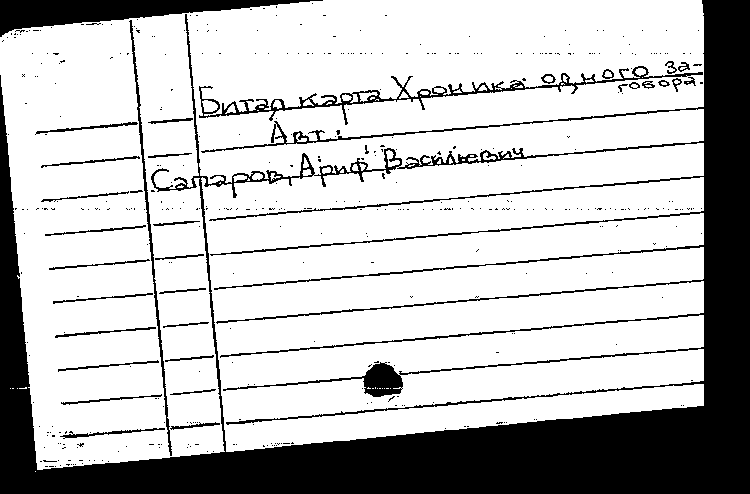 Битая карта. Хроника одного за-
говора.
Авт.:
Сапаров, Ариф Васильевич